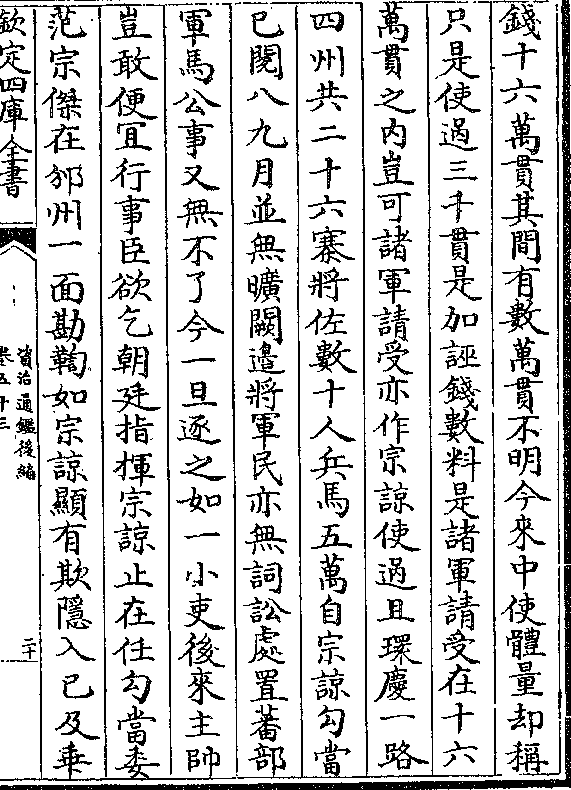 錢十六萬貫其間有數萬貫不明今來中使體量却稱
只是使過三千貫是加誣錢數料是諸軍請受在十六
萬貫之内豈可諸軍請受亦作宗諒使過且環慶一路
四州共二十六寨將佐數十人兵馬五萬自宗諒勾當
已閱八九月並無曠闕邉將軍民亦無詞訟處置蕃部
軍馬公事又無不了今一旦逐之如一小吏後來主帥
豈敢便宜行事臣欲乞朝廷指揮宗諒止在任勾當委
范宗傑在邠州一面勘鞫如宗諒顯有欺隱入已及乖
欽定四庫全書
資治通鑑後編
卷五十三
二十